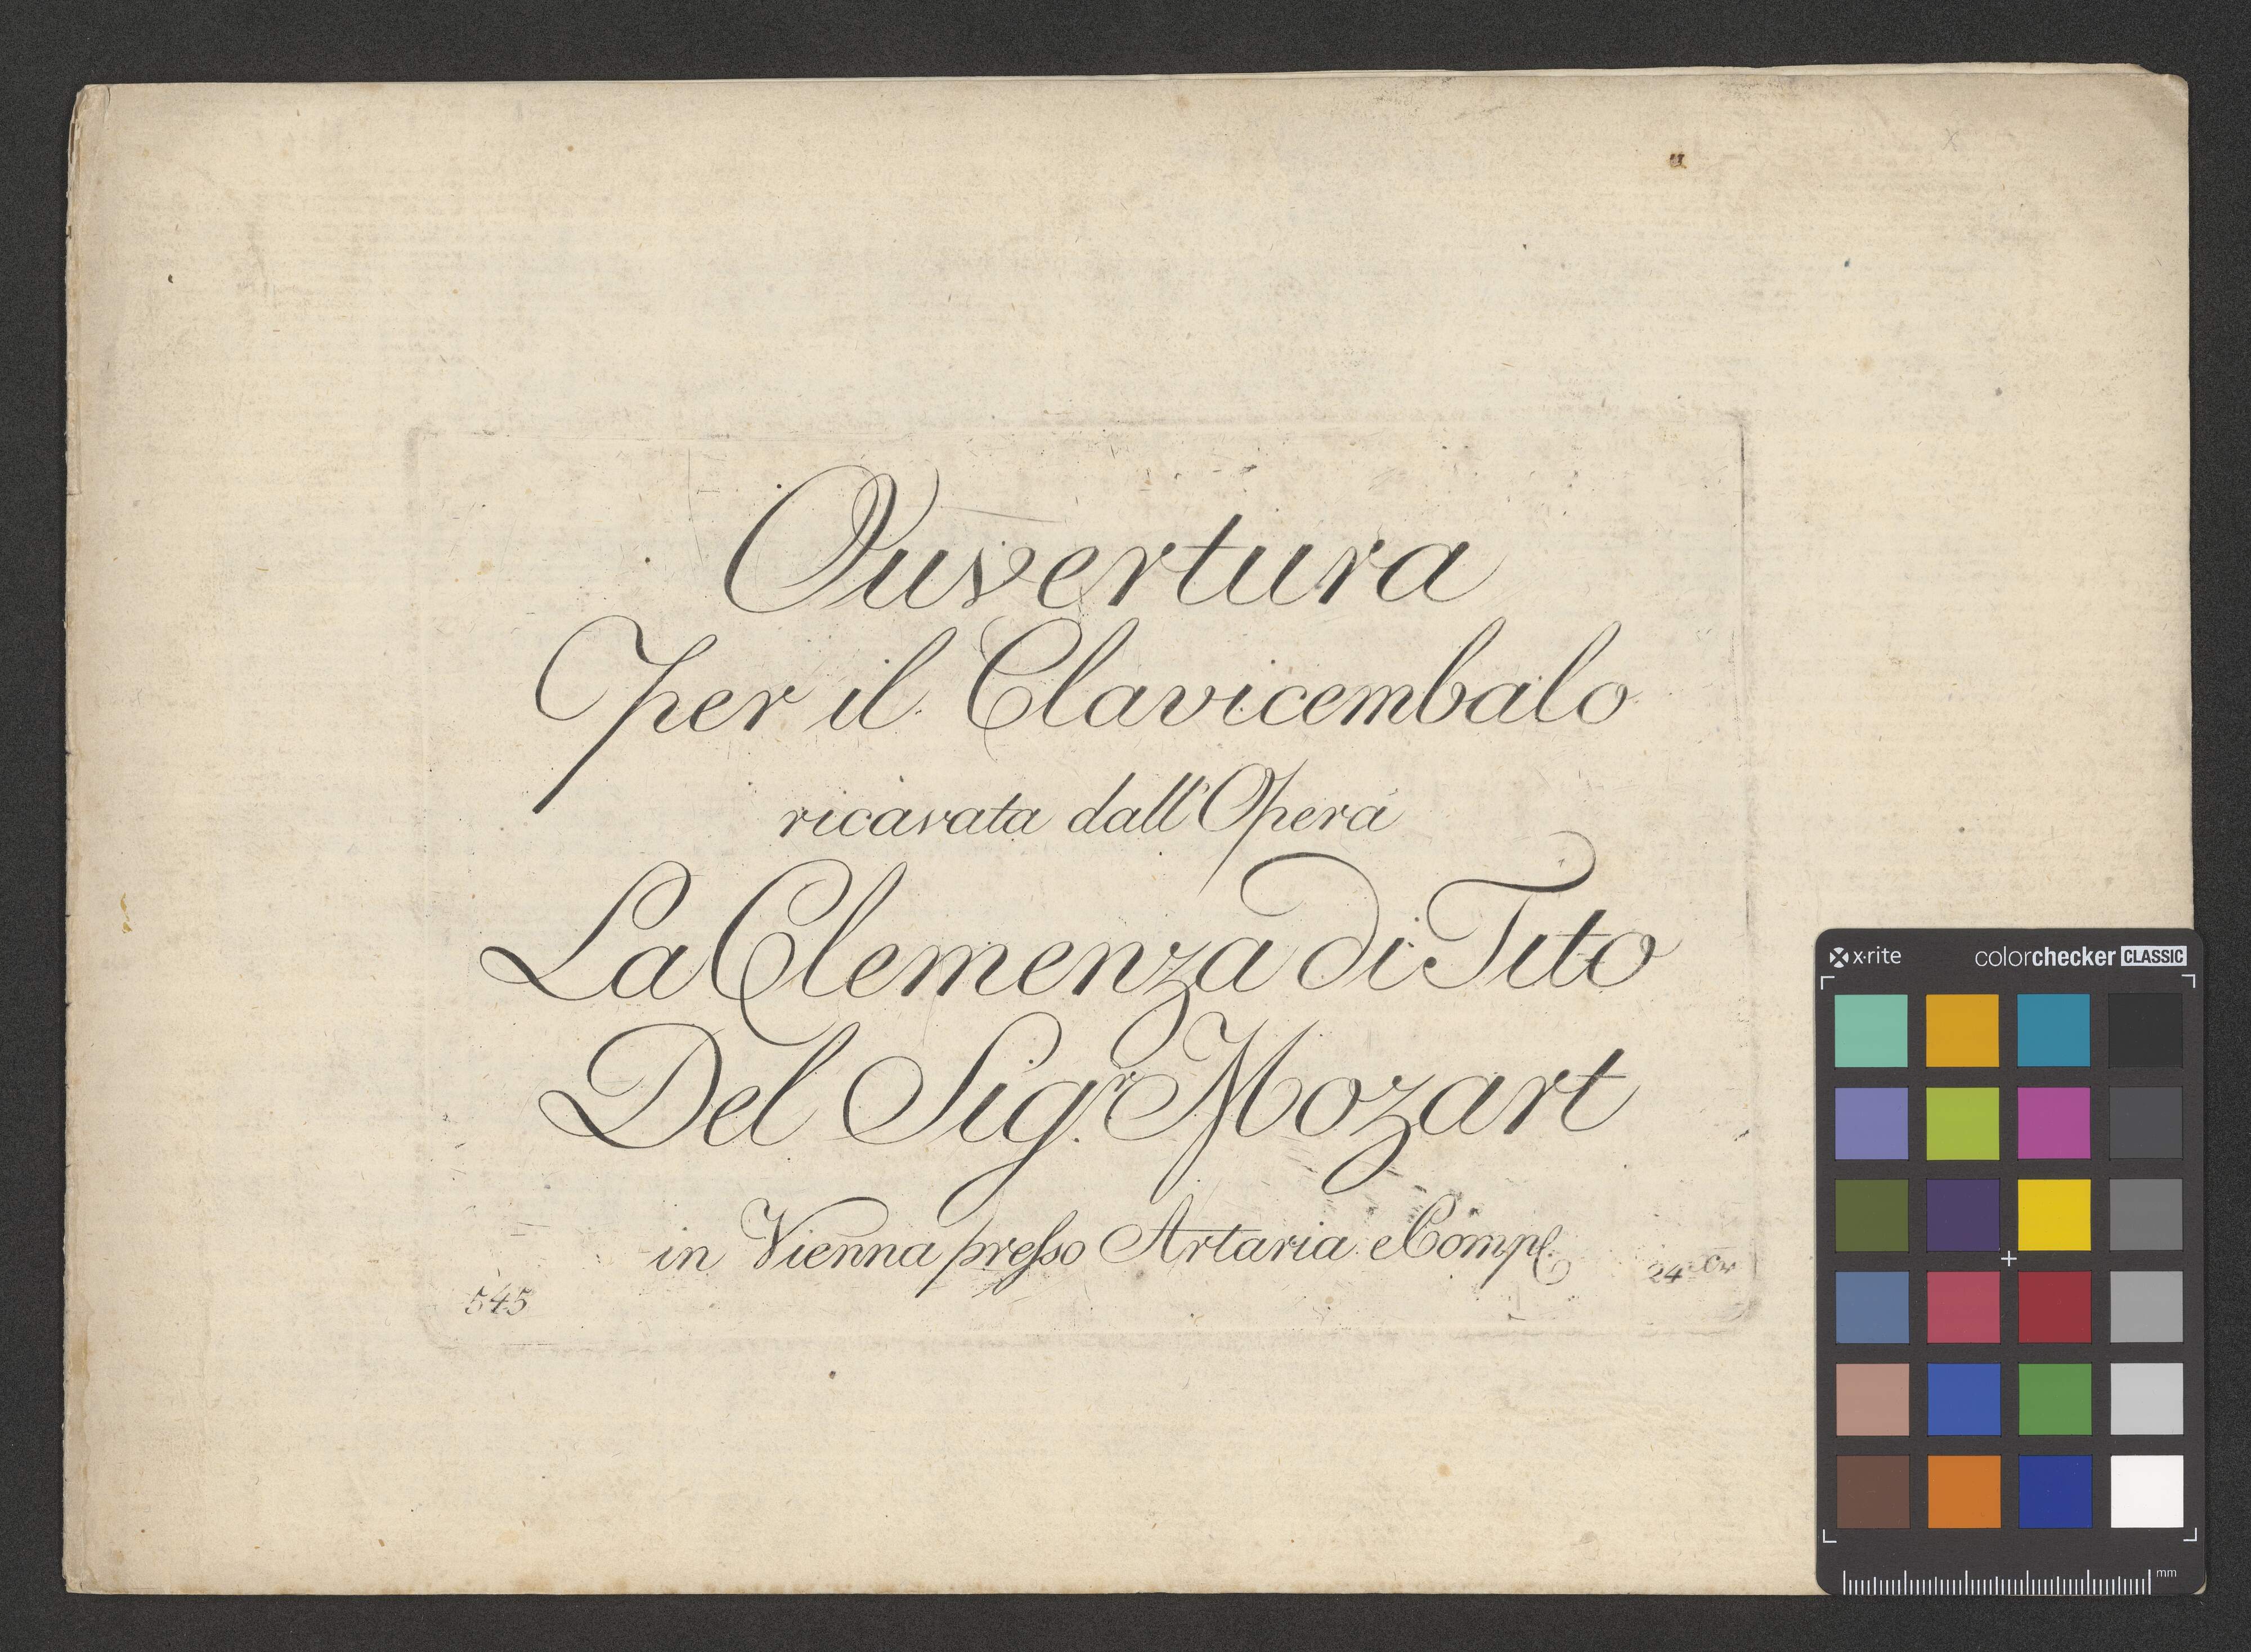 Ouvertura
Per il Clavicembalo
ricavata dall'Opera
La Clemenza di Tito
Del Sigr. Mozart
in Vienna presso Artaria e Comp.
545
24 Xr
x·rite
colorchecker CLASSIC
mm